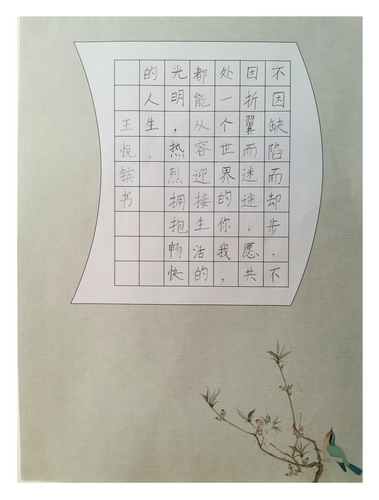 不因缺陷而却步,不
因折翼而迷途,愿共
处一个世界的你我,
都能从容迎接生活的
光明,热烈拥抱畅快
的人生。
王悦书